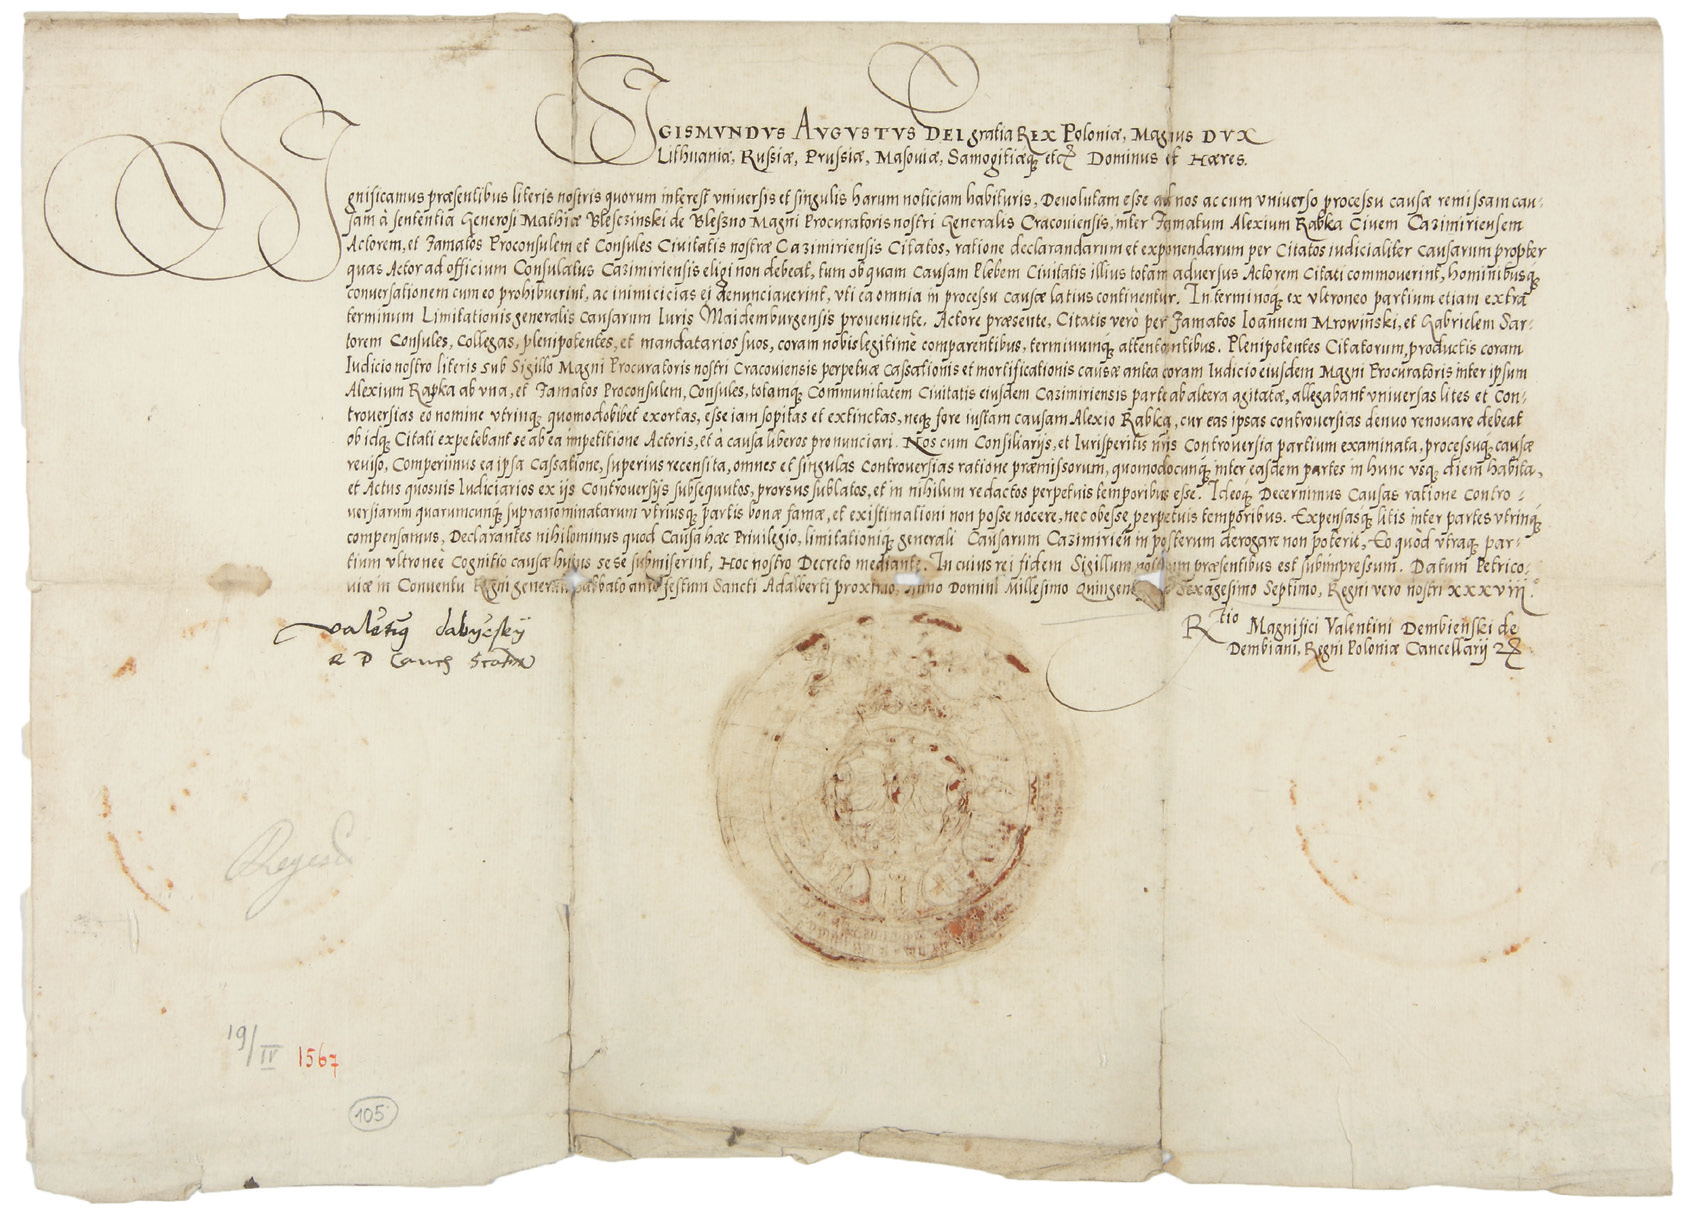 SIGISMVNDVS AVGVSTVS DEI gratia REX Poloniæ, Magnus DVX
Lithuaniæ, Russiæ, Prussiæ, Masouiæ, Samogitiæq; etcꝫ Dominus et Hæres.
Significamus præsentibus literis nostris quorum interest vniuersis et singulis harum noticiam habituris, Deuolutam esse ad nos ac cum vniuerso processu causæ remissam cau-
sam à sententia Generosi Mathiæ Bleszinski de Bleszno Magni Procuratoris nostri Generalis Cracouiensis, inter Famatum Alexium Rabka Ciuem Cazimiriensem
Actorem, et Famatos Proconsulem et Consules Ciuitatis nostræ Cazimiriensis Citatos, ratione declarandarum et exponendarum per Citatos iudicialiter causarum propter
quas Actor ad officium Consulatus Cazimiriensis eligi non debeat, tum ob quam Causam Plebem Ciuitatis illius totam aduersus Actorem Citati commouerint, hominibusq;
conuersationem cum eo prohibuerint, ac inimicicias ei denunciauerint, vti ea omnia in processu causæ latius continentur. In terminoq; ex vltroneo partium etiam extra
terminum Limitationis generalis causarum Iuris Maidemburgensis proueniente. Actore præsente, Citatis verò per Famatos Ioannem Mrowinski, et Gabrielem Sar-
torem Consules, Collegas, plenipotentes, et mandatarios suos, coram nobis legitimè comparentibus, terminumq; attentantibus. Plenipotentes Citatorum, productis coram
Iudicio nostro literis sub Sigillo Magni Procuratoris nostri Cracouiensis perpetuæ Cassationis et mortificationis causæ antea coram Iudicio eiusdem Magni Procuratoris inter ipsum
Alexium Rapka ab vna, et Famatos Proconsulem, Consules, totamq; Communitatem Ciuitatis eiusdem Cazimiriensis parte ab altera agitatæ, allegabant vniuersas lites et Con-
trouersias eo nomine vtrinq; quomodolibet exortas, esse iam sopitas et extinctas, neq; fore iustam causam Alexio Rabka, cur eas ipsas controuersias denuo renouare debeat
ob idq; Citati expetebant se ab ea impetitione Actoris, et à causa liberos pronunciari. Nos cum Consiliarijs, et Iurisperitis nr̃is Controuersia partium examinata, processuq; causæ
reuiso, Comperimus ea ipsa Cassatione, superius recensita, omnes et singulas Controuersias ratione præmissorum, quomodocunq; inter easdem partes in hunc vsq; diem habita,
et Actus quosuis Iudiciarios ex ijs Controuersijs subsequutos, prorsus sublatos, et in nihilum redactos perpetuis temporibus esse. Ideoq; Decernimus Causas ratione Contro-
uersiarum quarumcunq; supranominatarum vtriusq; partis bonæ famæ, et existimationi non posse nocere, nec obesse perpetuis temporibus. Expensasq; litis inter partes vtrinq;
compensamus, Declarantes nihilominus quod Causa hæc Priuilegio, limitationiq; generali Causarum Cazimirien̄ in posterum derogare non poterit, Eo quòd vtraq; par-
tium vltroneè Cognitio causæ huius sese submiserint, Hoc nostro Decreto mediante. In cuius rei fidem Sigillum nostrum præsentibus est subimpressum. Datum Petrico-
uiæ in Conuentu Regni generali Sabbato ante festum Sancti Adalberti proximo, Anno Domini Millesimo Quingentesimo Sexagesimo Septimo, Regni vero nostri XXXVIII.
R̃tio Magnifici Valentini Dembienski de
Dembiani, Regni Poloniæ Cancellarij ꝛꝫ
Regest
19/IV 1567
105